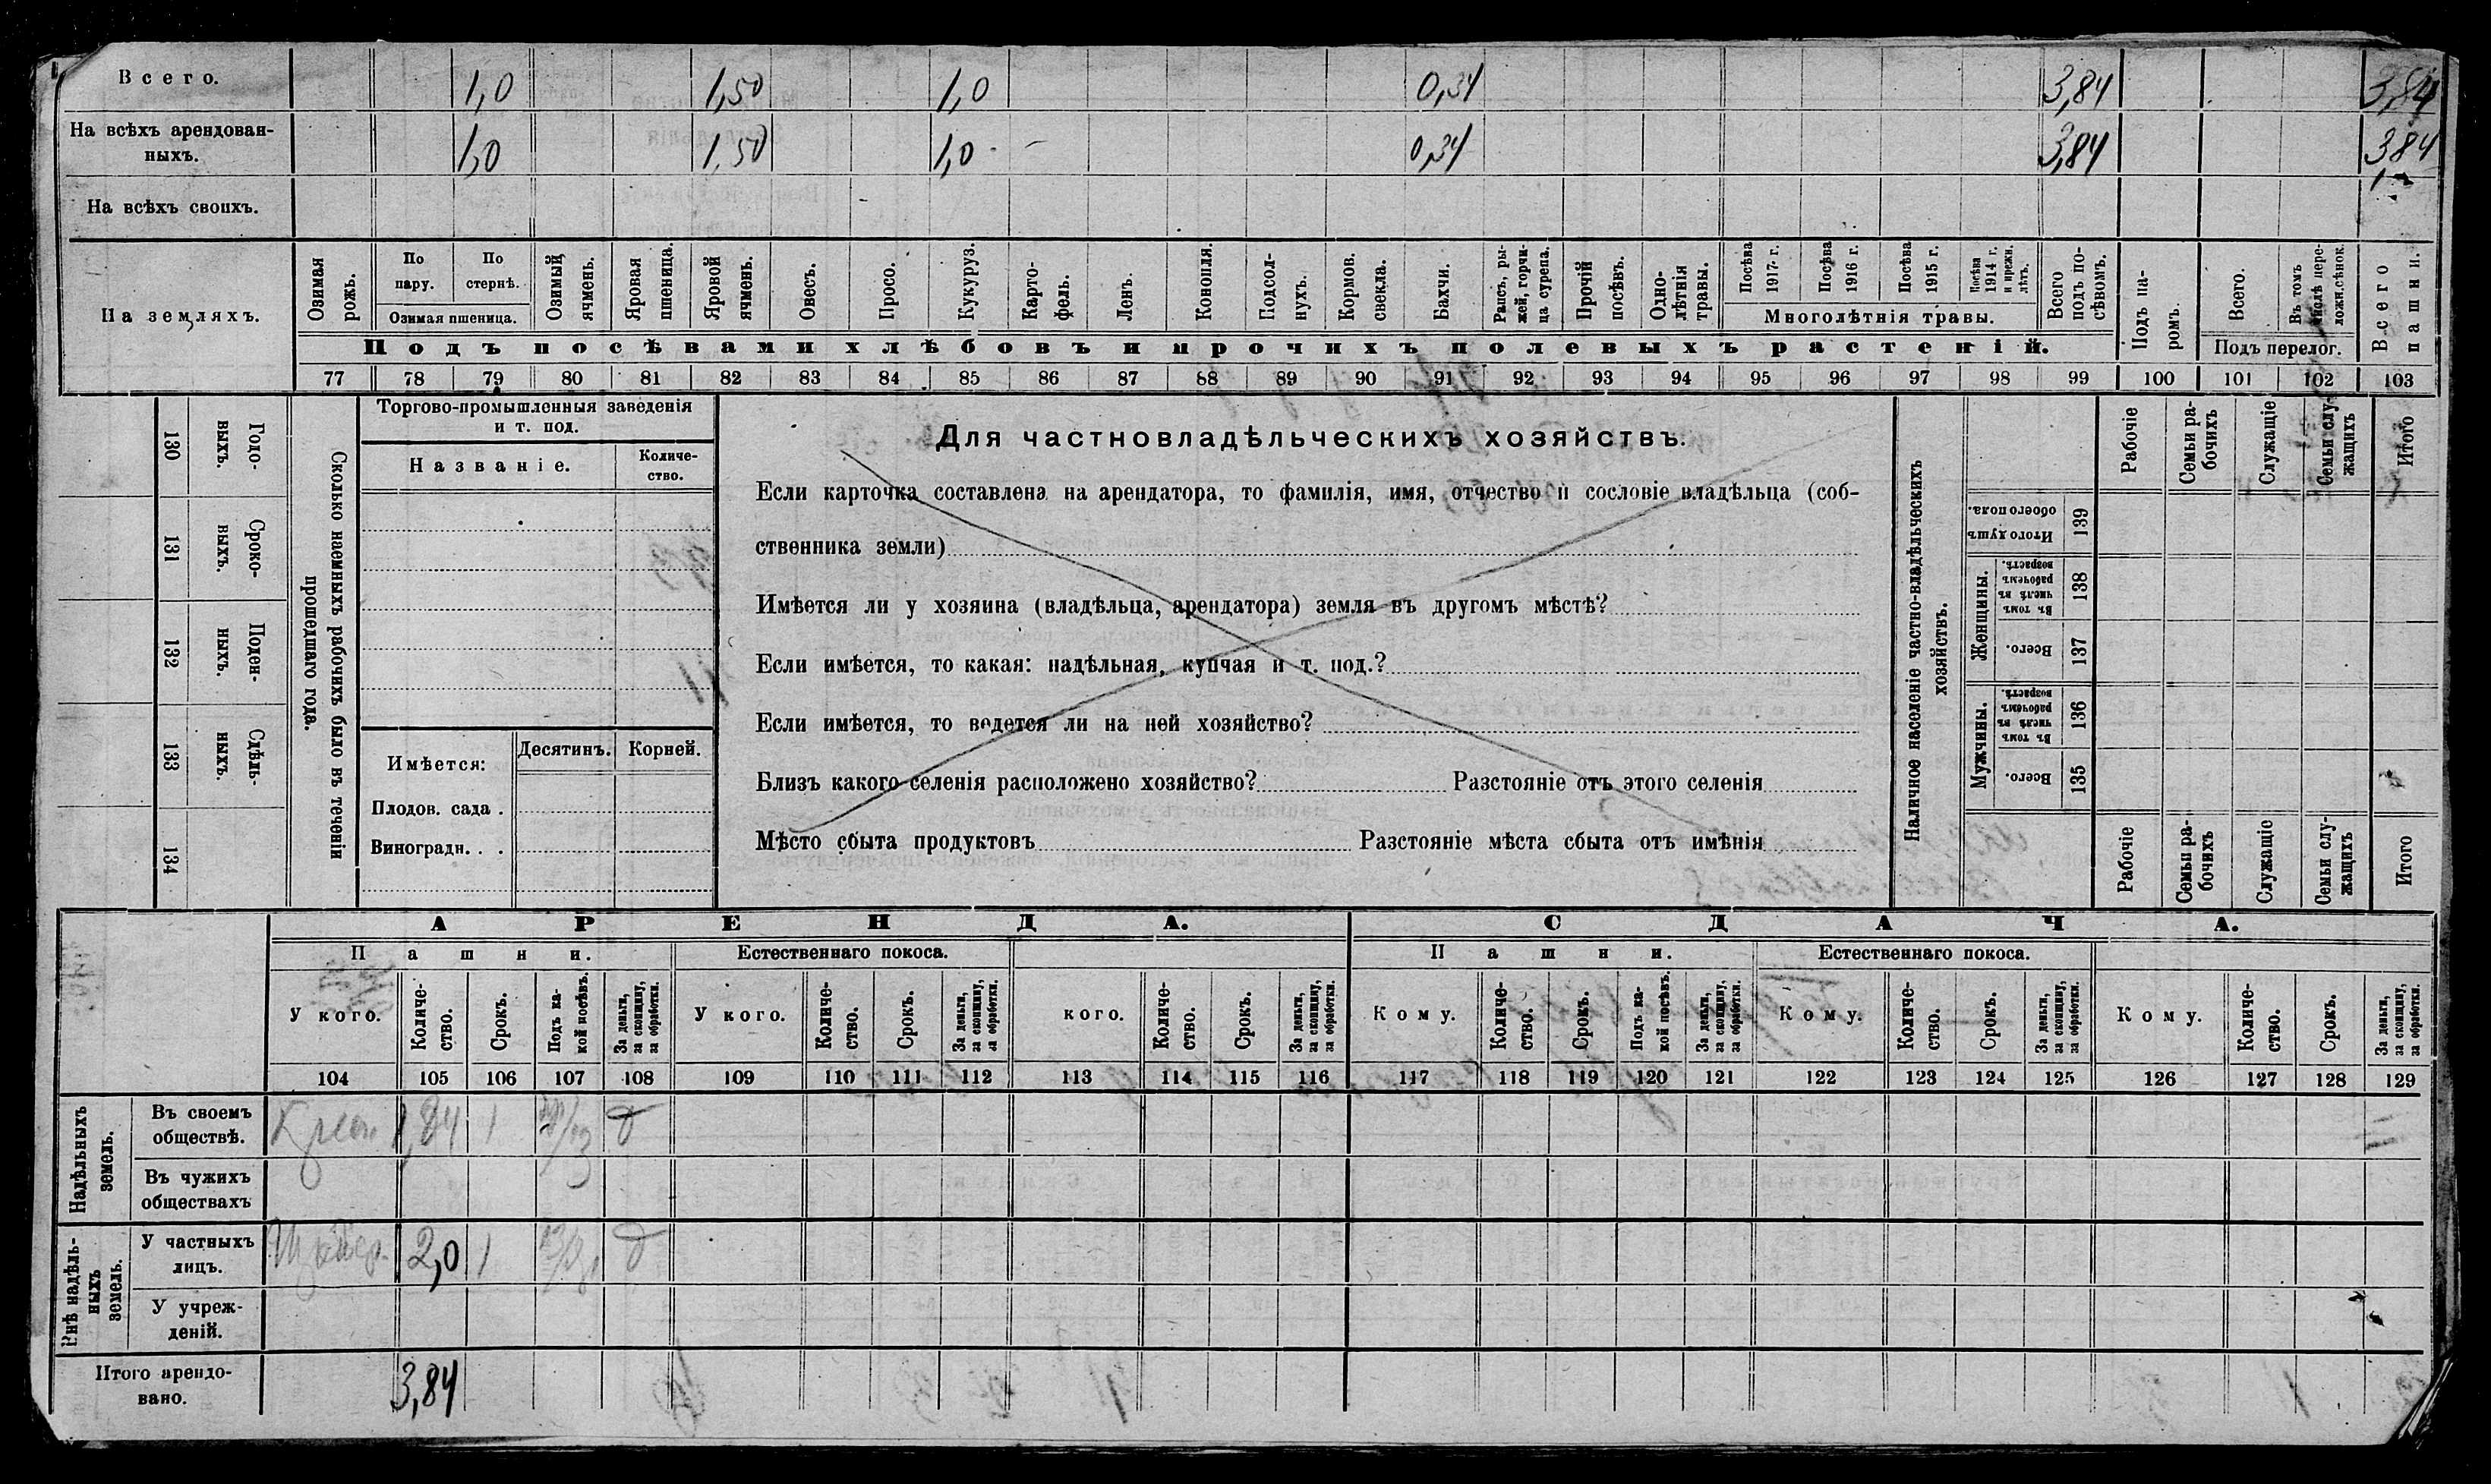 Всего. 1,0 1,50 1,0 0,34 3,84 3,84
На всѣхъ арендован-
ныхъ. 1,0 1,50 1,0 0,34 3,84 3,84
На всѣхъ своихъ.
На земляхъ.
Озимая рожь.
По пару.
По стернѣ.
Озимая пшеница.
Озимый ячмень.
Яровая пшеница.
Яровой ячмень.
Овесъ.
Просо.
Кукуруз.
Карто-
фель.
Ленъ.
Конопля.
Подсол-
нухъ.
Кормов. свекла.
Бахчи.
Рапсъ, ры-
жей, горчи-
ца сурепа.
Прочій посѣвъ.
Одно-
лѣтнія травы.
Посѣва 1917 г.
Посѣва 1916 г.
Посѣва 1915 г.
Посѣва 1914 г. и прежн. лѣтъ.
Многолѣтнія травы.
Всего подъ по-
сѣвомъ.
Подъ па-
ромъ.
Всего.
Въ томъ числѣ пере-
ложн. сѣнок.
Подъ перелог.
Всего пашни.
Подъ посѣвами хлѣбовъ и прочихъ полевыхъ растеній.
77 78 79 80 81 82 83 84 85 86 87 88 89 90 91 92 93 94 95 96 97 98 99 100 101 102 103
130 Годо-
выхъ.
131 Сроко-
выхъ.
132 Поден-
ныхъ.
133 Сдѣль-
ныхъ.
134
Сколько наемныхъ рабочихъ было въ теченіи
прошедшаго года.
Торгово-промышленныя заведенія
и т. под.
Названіе.
Количе-
ство.
Имѣется:
Десятинъ. Корней.
Плодов. сада .
Виноградн. . .
Для частновладѣльческихъ хозяйствъ.
Если карточка составлена на арендатора, то фамилія, имя, отчество и сословіе владѣльца (соб-
ственника земли)
Имѣется ли у хозяина (владѣльца, арендатора) земля въ другомъ мѣстѣ?
Если имѣется, то какая: надѣльная, купчая и т. под.?
Если имѣется, то ведется ли на ней хозяйство?
Близъ какого селенія расположено хозяйство? Разстояніе отъ этого селенія
Мѣсто сбыта продуктовъ Разстояніе мѣста сбыта отъ имѣнія
Наличное населеніе частно-владѣльческихъ
хозяйствъ.
Рабочіе
Семьи ра-
бочихъ
Служащіе
Семьи слу-
жащихъ
Итого
Итого душъ
обоего пола.
139
Женщины.
Въ томъ
числѣ въ
рабочемъ
возрастѣ.
138
Всего.
137
Мужчины.
Въ томъ
числѣ въ
рабочемъ
возрастѣ.
136
Всего.
135
Рабочіе
Семьи ра-
бочихъ
Служащіе
Семьи слу-
жащихъ
Итого
АРЕНДА. СДАЧА.
Пашни. Естественнаго покоса. Пашни. Естественнаго покоса.
У кого.
Количе-
ство.
Срокъ.
Подъ ка-
кой посѣвъ.
За деньги,
за скопщину,
за обработки.
У кого.
Количе-
ство.
Срокъ.
За деньги,
за скопщину,
за обработки.
кого.
Количе-
ство.
Срокъ.
За деньги,
за скопщину,
за обработки.
Кому.
Количе-
ство.
Срокъ.
Подъ ка-
кой посѣвъ.
За деньги,
за скопщину,
за обработки.
Кому.
Количе-
ство.
Срокъ.
За деньги,
за скопщину,
за обработки.
Кому.
Количе-
ство.
Срокъ.
За деньги,
за скопщину,
за обработки.
104 105 106 107 108 109 110 111 112 113 114 115 116 117 118 119 120 121 122 123 124 125 126 127 128 129
Надѣльныхъ
земель.
Въ своемъ
обществѣ. 1,84 1 д
Въ чужихъ
обществахъ
Внѣ надѣль-
ныхъ
земель.
У частныхъ
лицъ. 2,0 1 д
У учреж-
деній.
Итого арендо-
вано. 3,84